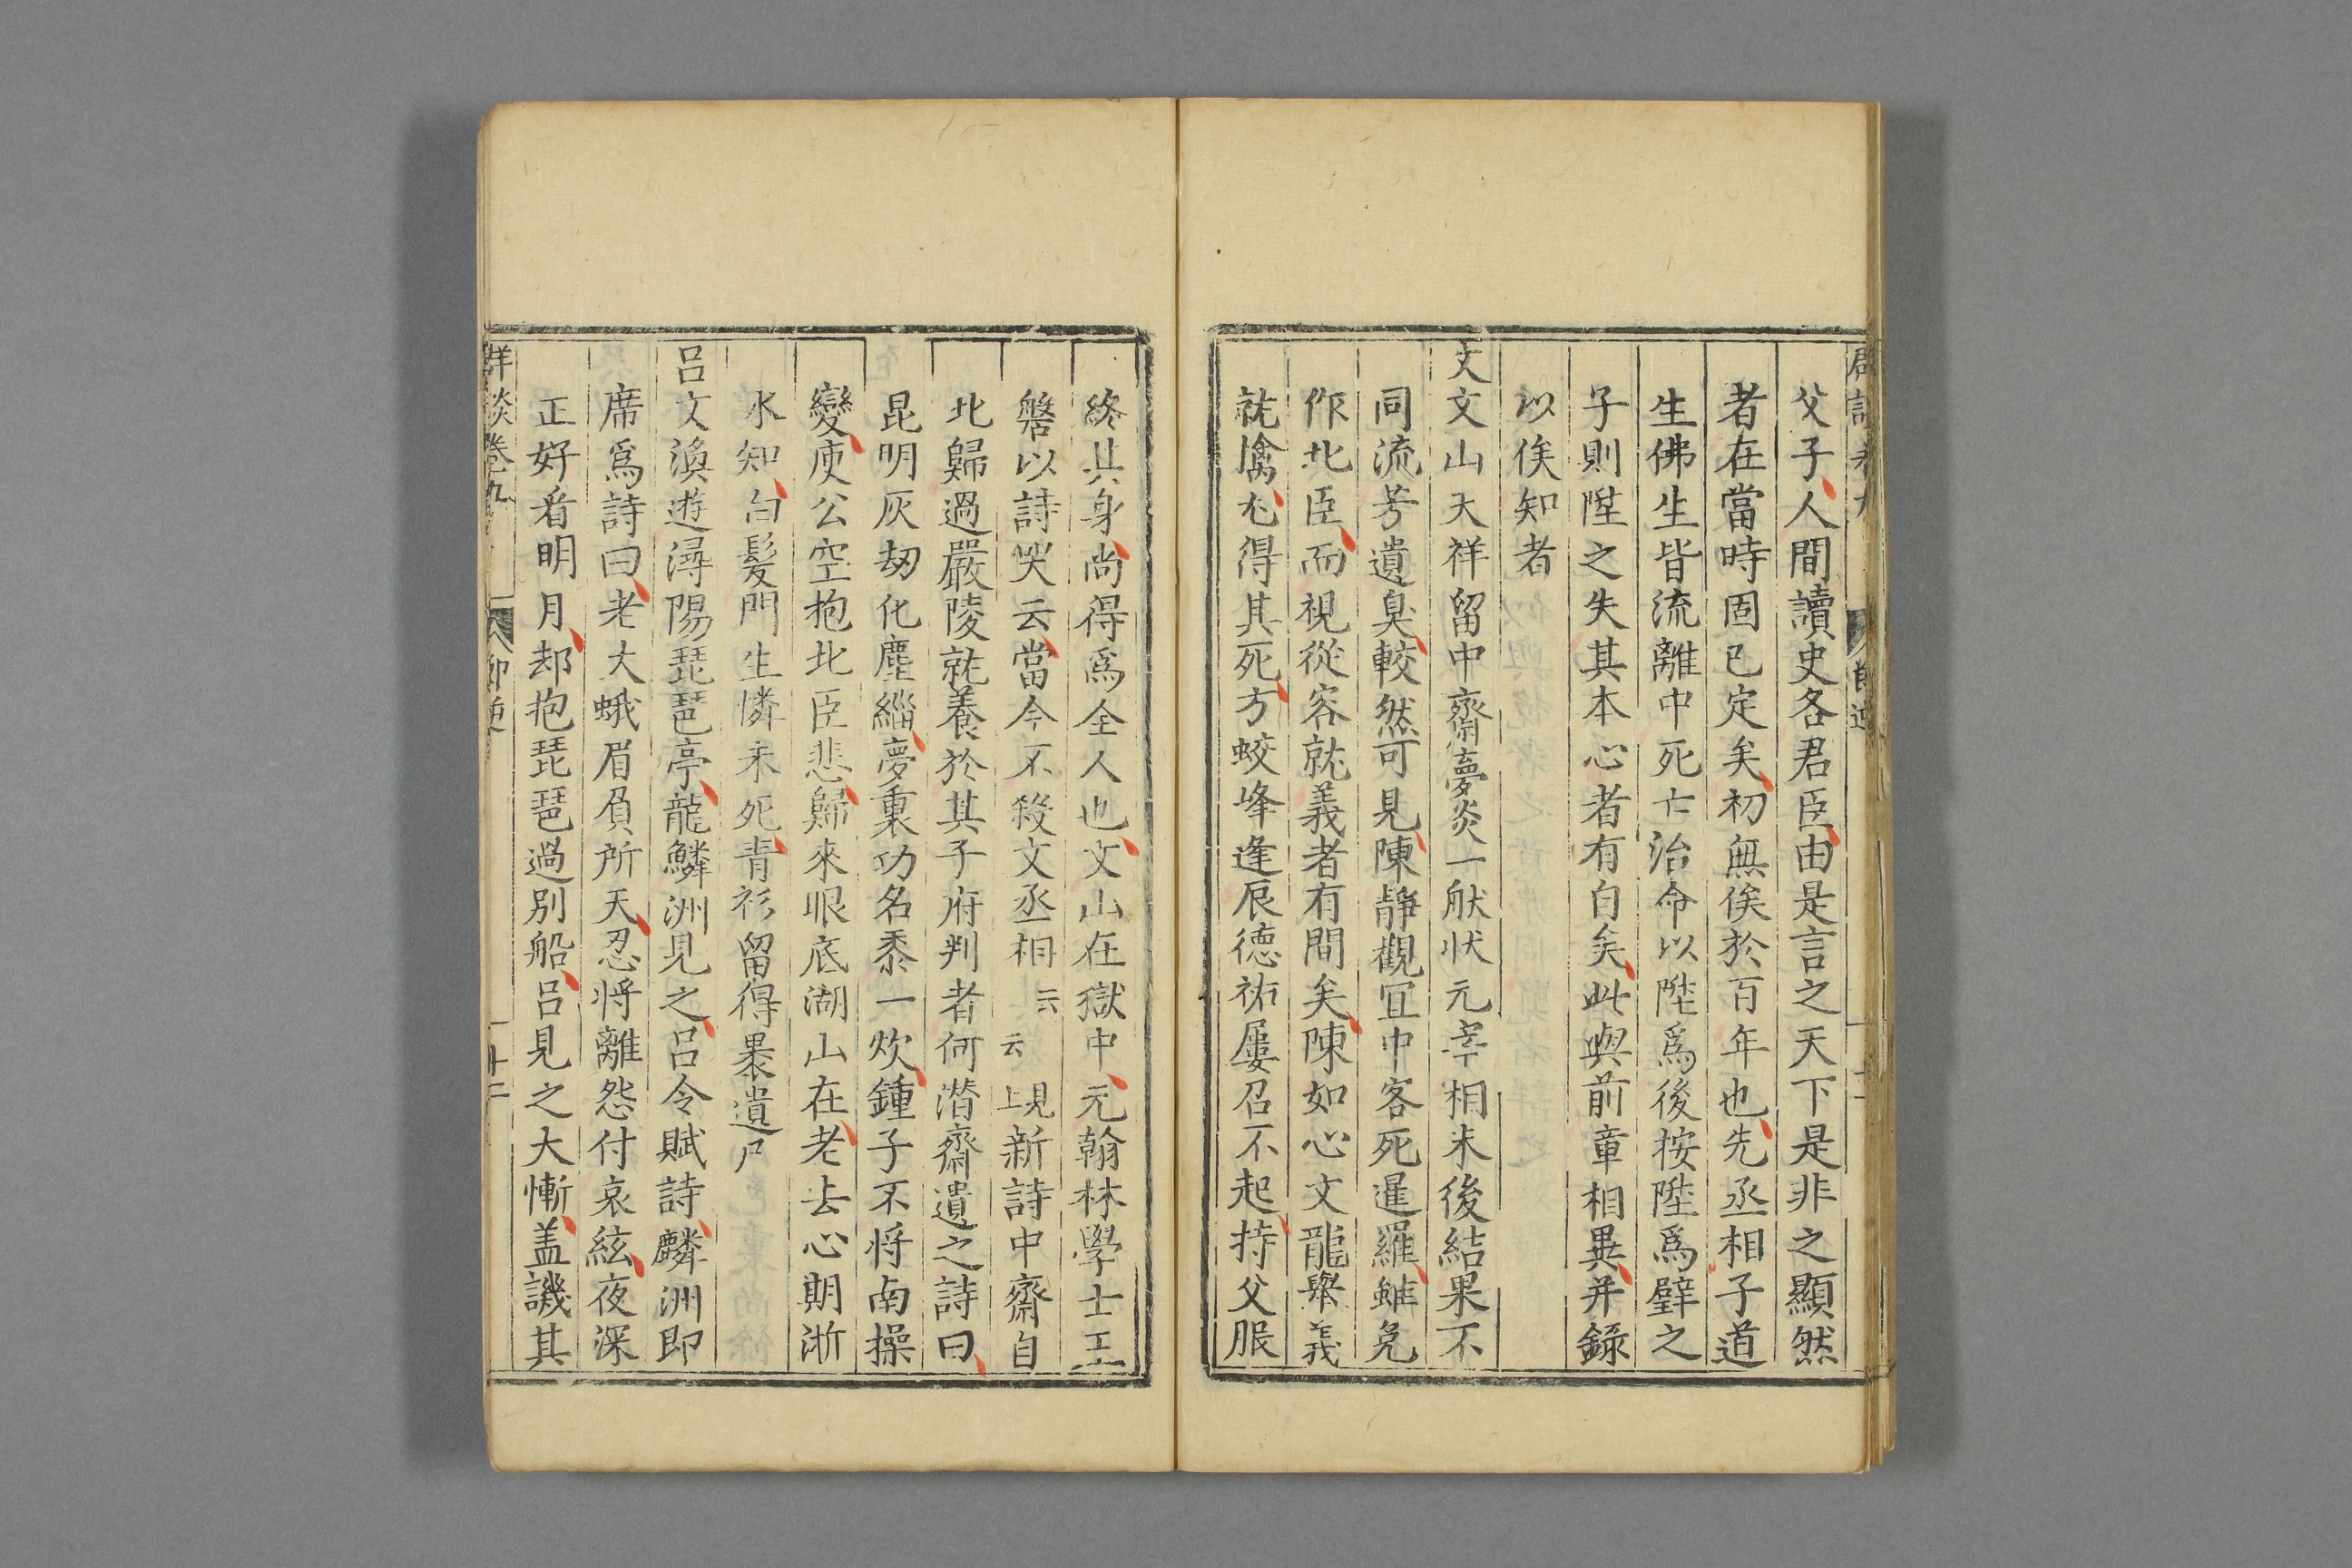 父子人間讀史各君臣由是言之天下是非之顯然
者在當時固已定矣初無俟於百年也先丞相子道
生佛生皆流離中死亡治命以陞爲後按陞爲璧之
子則陞之失其本心者有自矣此與前章相異并錄
以俟知者
文文山天祥留中齋夢炎一般狀元宰相末後結果不
同流芳遺臭較然可見陳靜觀冝中客死暹羅雖免
作北臣而視從容就義者有間矣陳如心文龍舉義
就擒尢得其死方蛟峰逢辰德祐屢召不起持父服
終其身尚得爲全人也文山在獄中元翰林學士王
磐以詩哭云當今不殺文丞相云云見上新詩中齋自
北歸過嚴陵就養於其子府判者何潜齋遺之詩曰
昆明灰刼化塵緇夢裏功名黍一炊鍾子不將南操
變庾公空抱北臣悲歸來眼底湖山在老去心期浙
水知白髮門生憐未死青衫留得裹遺尸
呂文渙遊潯陽琵琶亭龍鱗洲見之呂令賦詩麟洲即
席爲詩曰老大蛾眉負所天忍將離怨付哀絃夜深
正好看明月却抱琵琶過別船呂見之大慚盖譏其
群談卷九
二十二